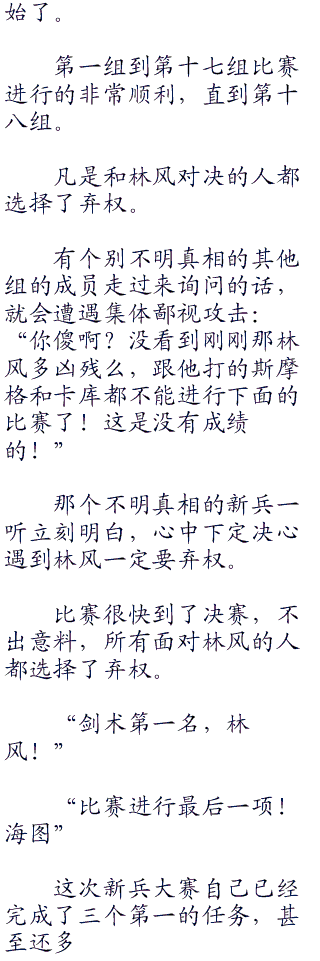 始了。
第一组到第十七组比赛
进行的非常顺利，直到第十
八组。
凡是和林风对决的人都
选择了弃权。
有个别不明真相的其他
组的成员走过来询问的话，
就会遭遇集体鄙视攻击：
“你傻啊？没看到刚刚那林
风多凶残么，跟他打的斯摩
格和卡库都不能进行下面的
比赛了！这是没有成绩
的！”
那个不明真相的新兵一
听立刻明白，心中下定决心
遇到林风一定要弃权。
比赛很快到了决赛，不
出意料，所有面对林风的人
都选择了弃权。
“剑术第一名，林
风！”
“比赛进行最后一项！
海图”
这次新兵大赛自己已经
完成了三个第一的任务，甚
至还多